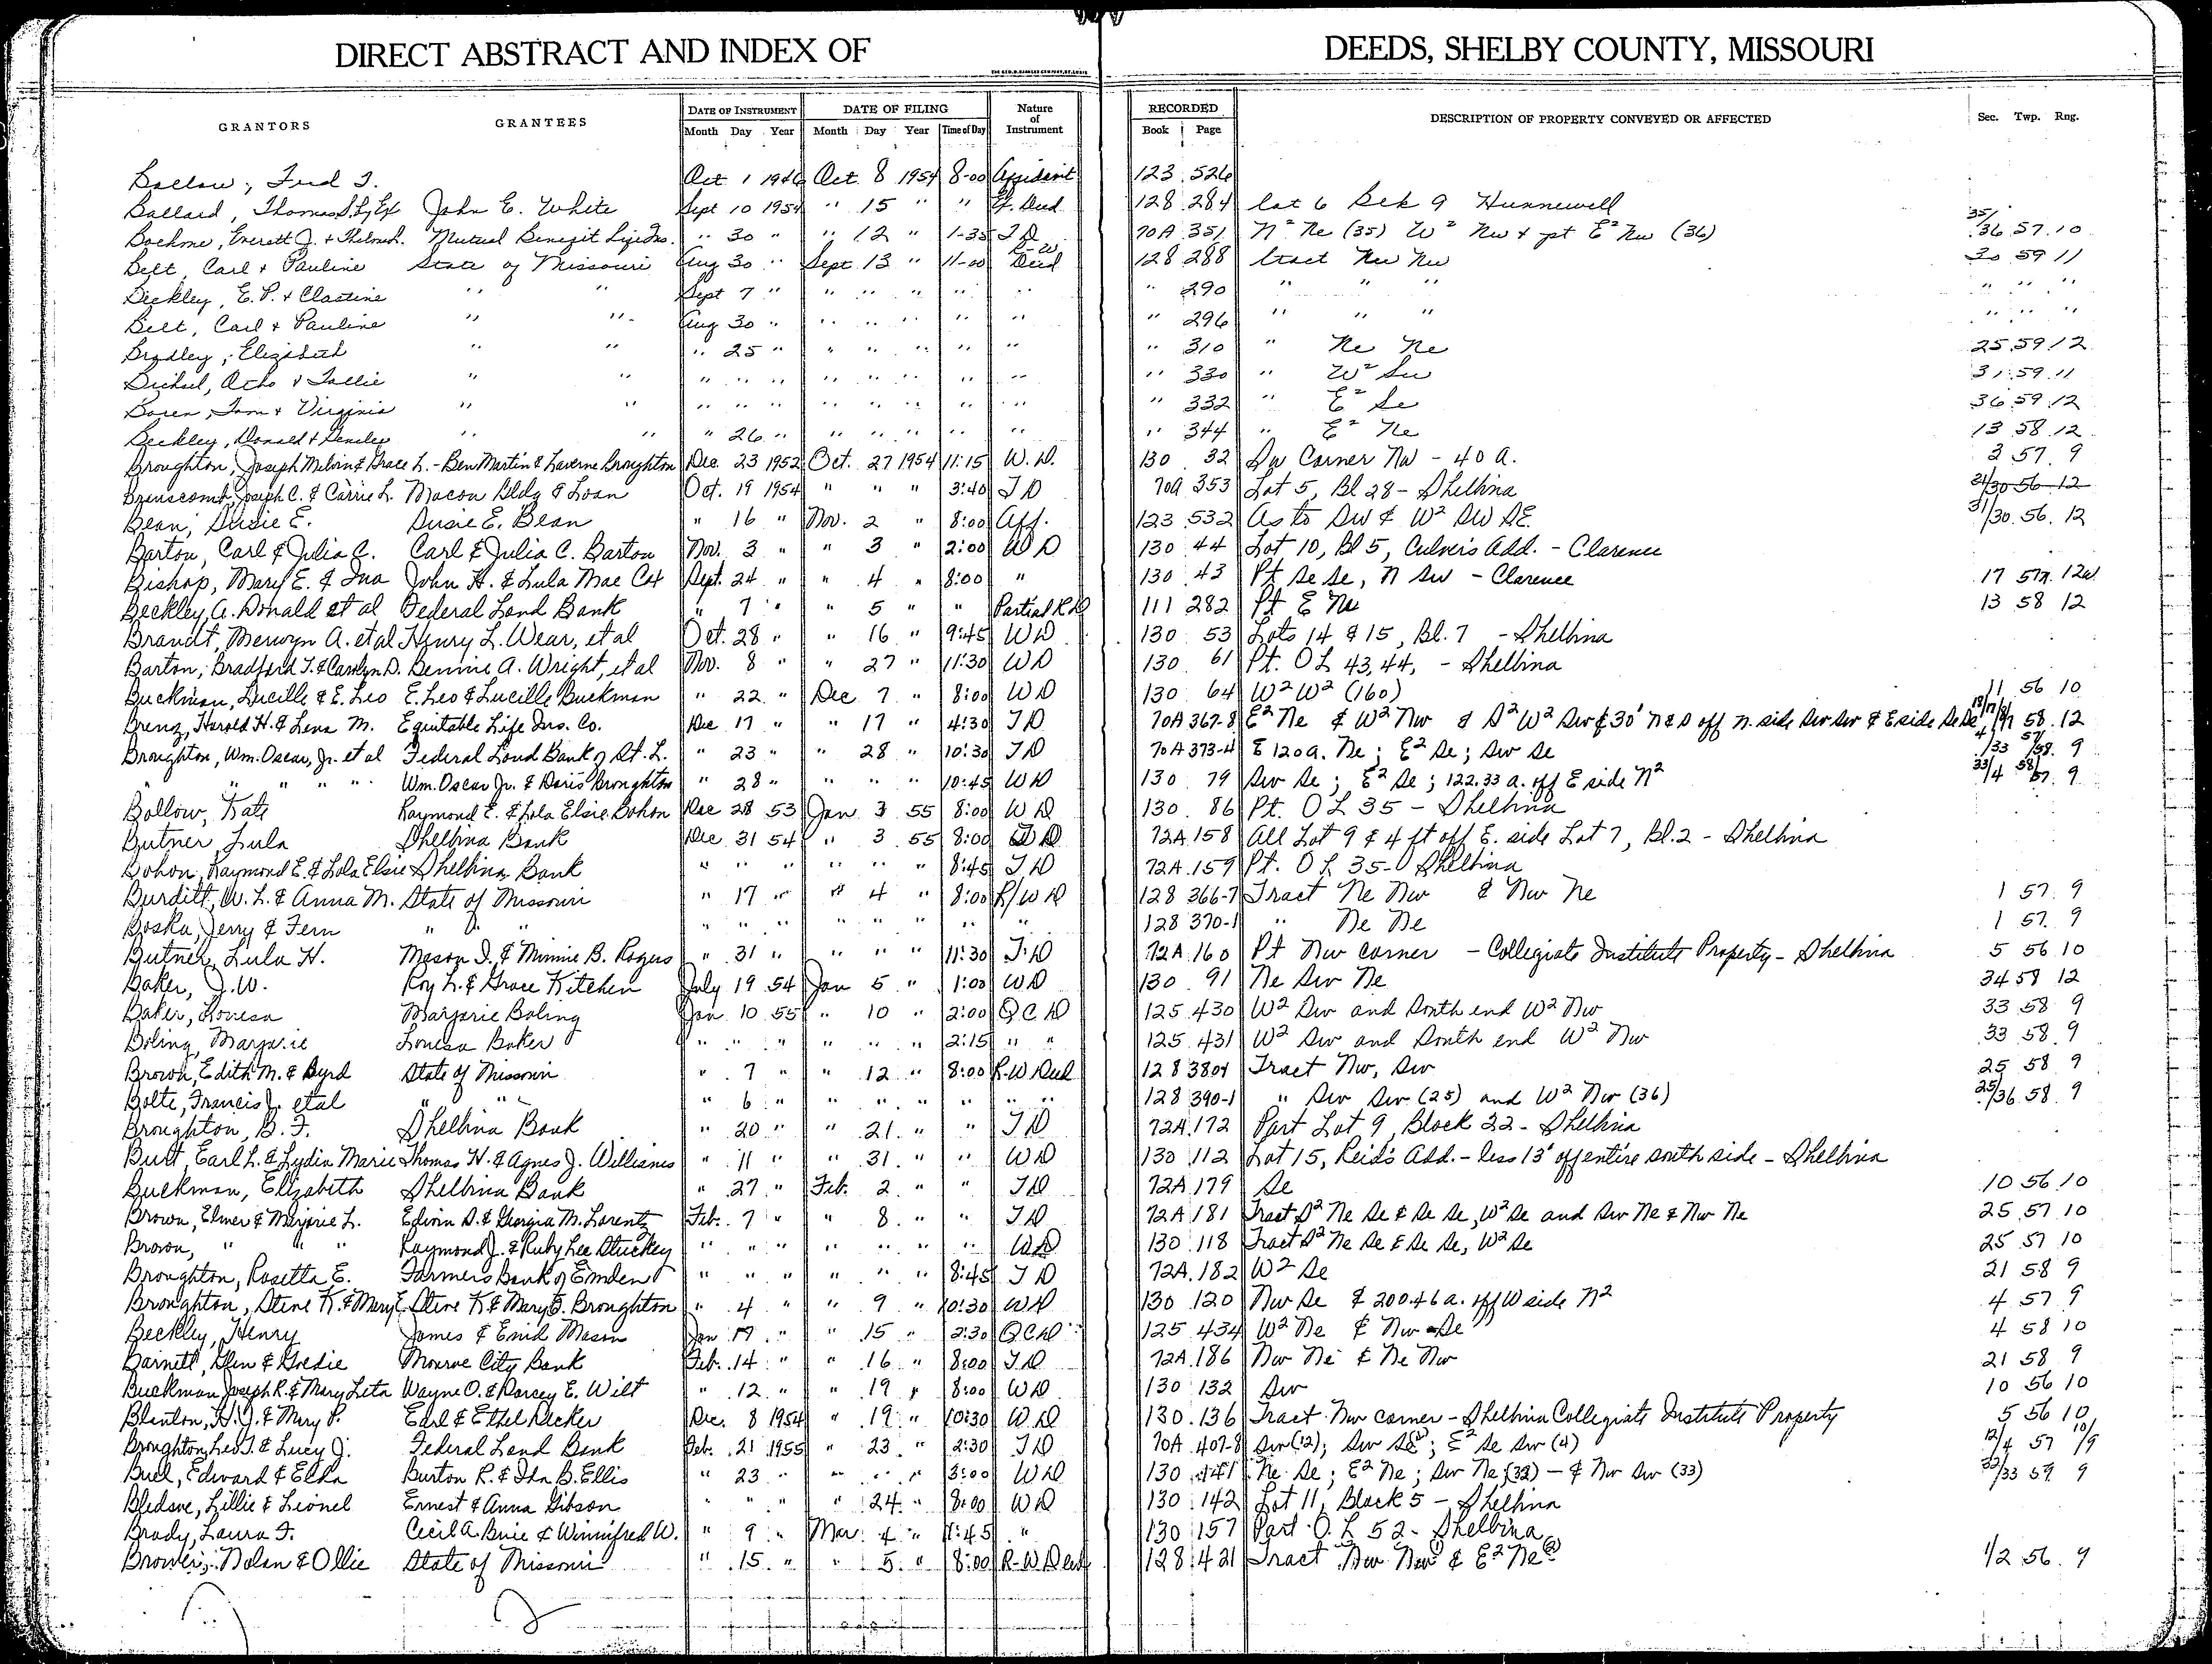 DIRECT ABSTRACT AND INDEX OF DEEDS, SHELBY COUNTY, MISSOURI
GRANTORS GRANTEES DATE OF INSTRUMENT DATE OF FILING Nature of Instrument RECORDED DESCRIPTION OF PROPERTY CONVEYED OR AFFECTED Sec. Twp. Rng.
Month Day Year Month Day Year Time of Day Book Page
Oct 1 1946 Oct 8 1954 8-00 Affidavit 123 526
Ballard, Thomas John E. White Sept 10 1954 " 15 " " Deed 128 284 Lot 6 Blk 9 Hunnewell
Boehme, Everett J. & Thelma L. Mutual Benefit Life Ins. " 30 " " 12 " 1-35 T D 70A 351 N² Ne (35) W² Nw & pt E² Nw (36) 35/36 57 10
Belt, Carl & Pauline State of Missouri Aug 30 " Sept 13 " 11-00 R-W Deed 128 288 tract Nw Nw 30 59 11
Beckley, E. P. & Clastine " " Sept 7 " " " " " " " 290 " " " " " "
Belt, Carl & Pauline " " Aug 30 " " " " " " " 296 " " " " " "
Bradley, Elizabeth " " " 25 " " " " " " " 310 " Ne Ne 25 59 12
" " " " " " " " " " " 330 " W² Sw 31 59 11
Boren, Tom & Virginia " " " " " " " " " " " 332 " E² Se 36 59 12
Beckley, Donald & " " " 26 " " " " " " " 344 " E² Ne 13 58 12
Broughton, Joseph Melvin & Grace L. - Ben Martin & Laverne Broughton Dec. 23 1952 Oct. 27 1954 11:15 W. D. 130 32 Sw Corner Nw - 40 a. 3 57 9
Joseph C. & Carrie L. Macon Bldg & Loan Oct. 19 1954 " " " 3:40 T D 70A 353 Lot 5, Bl 28 - Shelbina
Bean, Susie E. Susie E. Bean " 16 " Nov. 2 " 8:00 Aff. 123 532 As to SW & W² SW SE 31/30 56 12
Barton, Carl & Julia C. Carl & Julia C. Barton Nov. 3 " " 3 " 2:00 W D 130 44 Lot 10, Bl 5, Culver's Add. - Clarence
Bishop, Mary E. & Ina John H. & Lula Mae Cox Sept. 24 " " 4 " 8:00 " 130 43 Pt Se Se, N Sw - Clarence 17 57N 12W
Beckley, A. Donald et al Federal Land Bank " 7 " " 5 " " Partial R D 111 282 Pt E Ne 13 58 12
Brandt, Merwyn A. et al Henry L. Wear, et al Oct. 28 " " 16 " 9:45 WD 130 53 Lots 14 & 15, Bl. 7 - Shelbina
Barton, Bradford T. & Carolyn D. Bennie A. Wright, et al Nov. 8 " " 27 " 11:30 WD 130 61 Pt. OL 43, 44, - Shelbina
Buckman, Lucille & E. Leo E. Leo & Lucille Buckman " 22 " Dec 7 " 8:00 WD 130 64 W² W² (160) 11 56 10
Brenz, Harold H. & Lena M. Equitable Life Ins. Co. Dec 17 " " 17 " 4:30 T D 70A 367-8 E² Ne & W² Nw & S² W² Sw & 30' N & S off n. side Sw Sw & E side Se Se 58 12
Broughton, Wm. Oscar, Jr. et al Federal Land Bank of St. L. " 23 " " 28 " 10:30 T D 70A 373-4 E 120 a. Ne; E² Se; Sw Se 4/33 57/58 9
" " " " Wm. Oscar Jr. & Doris Broughton " 28 " " " " 10:45 WD 130 79 Sw Se; E² Se; 122.33 a. off E side N² 33/4 58/57 9
Bollow, Kate Raymond E. & Lola Elsie Bohon Dec 28 53 Jan 3 55 8:00 WD 130 86 Pt. OL 35 - Shelbina
Butner, Lula Shelbina Bank Dec 31 54 " 3 55 8:00 T D 72A 158 All Lot 9 & 4 ft off E. side Lot 7, Bl. 2 - Shelbina
Bohon, Raymond E. & Lola Elsie Shelbina Bank " " " " " " 8:45 T D 72A 159 Pt. OL 35 - Shelbina
Burditt, W. L. & Anna M. State of Missouri " 17 " " 4 " 8:00 R/W D 128 366-7 Tract Ne Nw & Nw Ne 1 57 9
Boska, Jerry & Fern " " " " " " " " " " 128 370-1 " Ne Ne 1 57 9
Butner, Lula H. Mason I. & Minnie B. Rogers " 31 " " " " 11:30 T. D 72A 160 Pt Nw corner - Collegiate Institute Property - Shelbina 5 56 10
Baker, J. W. Roy L. & Grace Kitchen July 19 54 Jan 5 " 1:00 WD 130 91 Ne Sw Ne 34 58 12
Baker, Louesa Marjorie Boling Jan 10 55 " 10 " 2:00 Q C D 125 430 W² Sw and South end W² Nw 33 58 9
Boling, Marjorie Louesa Baker " " " " " " 2:15 " " 125 431 W² Sw and South end W² Nw 33 58 9
Brown, Edith M. & Byrd State of Missouri " 7 " " 12 " 8:00 R-W Deed 128 380-1 Tract Nw, Sw 25 58 9
Bolte, Francis J. et al " " " 6 " " " " " " " 128 390-1 " Sw Sw (25) and W² Nw (36) 25/36 58 9
Broughton, B. F. Shelbina Bank " 20 " " 21 " " T D 72A 172 Part Lot 9, Block 22 - Shelbina
Burt, Earl L. & Lydia Marie Thomas H. & Agnes J. Williams " 11 " " 31 " " WD 130 112 Lot 15, Reid's Add. - less 13' off entire south side - Shelbina
Buckman, Elizabeth Shelbina Bank " 27 " Feb. 2 " " T D 72A 179 Se 10 56 10
Brown, Elmer & Marjorie L. Edwin D. & Georgia M. Lorentz Feb. 7 " " 8 " " T D 72A 181 Tract S² Ne Se & Se Se, W² Se and Sw Ne & Nw Ne 25 57 10
Brown, " " " Raymond J. & Ruby Lee Stuckey " " " " " " " WD 130 118 Tract S² Ne Se & Se Se, W² Se 25 57 10
Broughton, Rosetta E. Farmers Bank of Emden " " " " " " 8:45 T D 72A 182 W² Se 21 58 9
Broughton, Stene K. & Mary E. Stene K & Mary E. Broughton " 4 " " 9 " 10:30 WD 130 120 Nw Se & 200.46 a. off W side N² 4 57 9
Beckley, Henry James & Enid Mason Jan 19 " " 15 " 2:30 Q C D 125 434 W² Ne & Nw Se 4 58 10
Barnett, Glen & Goedie Monroe City Bank Feb. 14 " " 16 " 8:00 T D 72A 186 Nw Ne & Ne Nw 21 58 9
Buckman, Joseph R. & Mary Leta Wayne O. & Darcey E. Wilt " 12 " " 19 " 8:00 WD 130 132 Sw 10 56 10
Blanton, H. J. & Mary P. Earl & Ethel Decker Dec. 8 1954 " 19 " 10:30 W. D 130 136 Tract Nw corner - Shelbina Collegiate Institute Property 5 56 10
Broughton, Leo T. & Lucy J. Federal Land Bank Feb. 21 1955 " 23 " 2:30 T D 70A 407-8 Sw (12); Sw Se; E² Se Sw (4) 12/4 57 10/9
Buel, Edward & Elda Burton R. & Ida B. Ellis " 23 " " " " 3:00 WD 130 141 Ne Se; E² Ne; Sw Ne (32) - & Nw Sw (33) 32/33 59 9
Bledsoe, Lillie & Lionel Ernest & Anna Gibson " " " " 24 " 8:00 WD 130 142 Lot 11, Block 5 - Shelbina
Brady, Laura F. Cecil A. Buie & Winnifred W. " 9 " Mar. 4 " 11:45 " 130 157 Part O. L 52 - Shelbina
Nolan & Ollie State of Missouri " 15 " " 5 " 8:00 R-W Deed 128 421 Tract Nw Nw (1) & E² Ne (2) 1/2 56 9